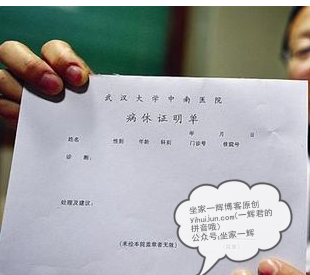 武汉大学中南医院
病休证明单
年 月 日
姓名 性别 年龄 科别 门诊号 住院号
诊断：
处理及建议：
(未经本院盖章者无效)
坐家一辉博客原创
yihuijun.com(一辉君的
拼音哦)
公众号:坐家一辉